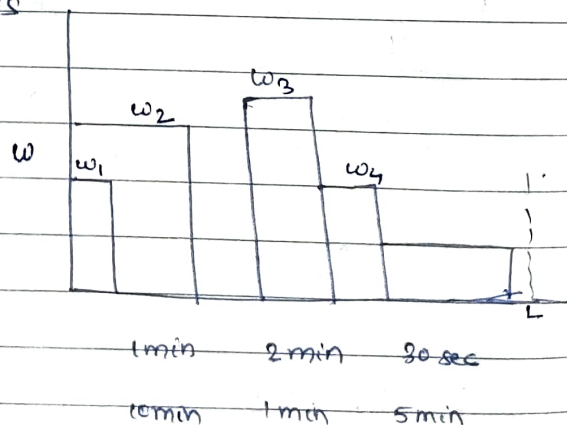 S
ω3
ω2
ω ω1 ω4
L
1min 2 min 30 sec
10min 1 min 5 min